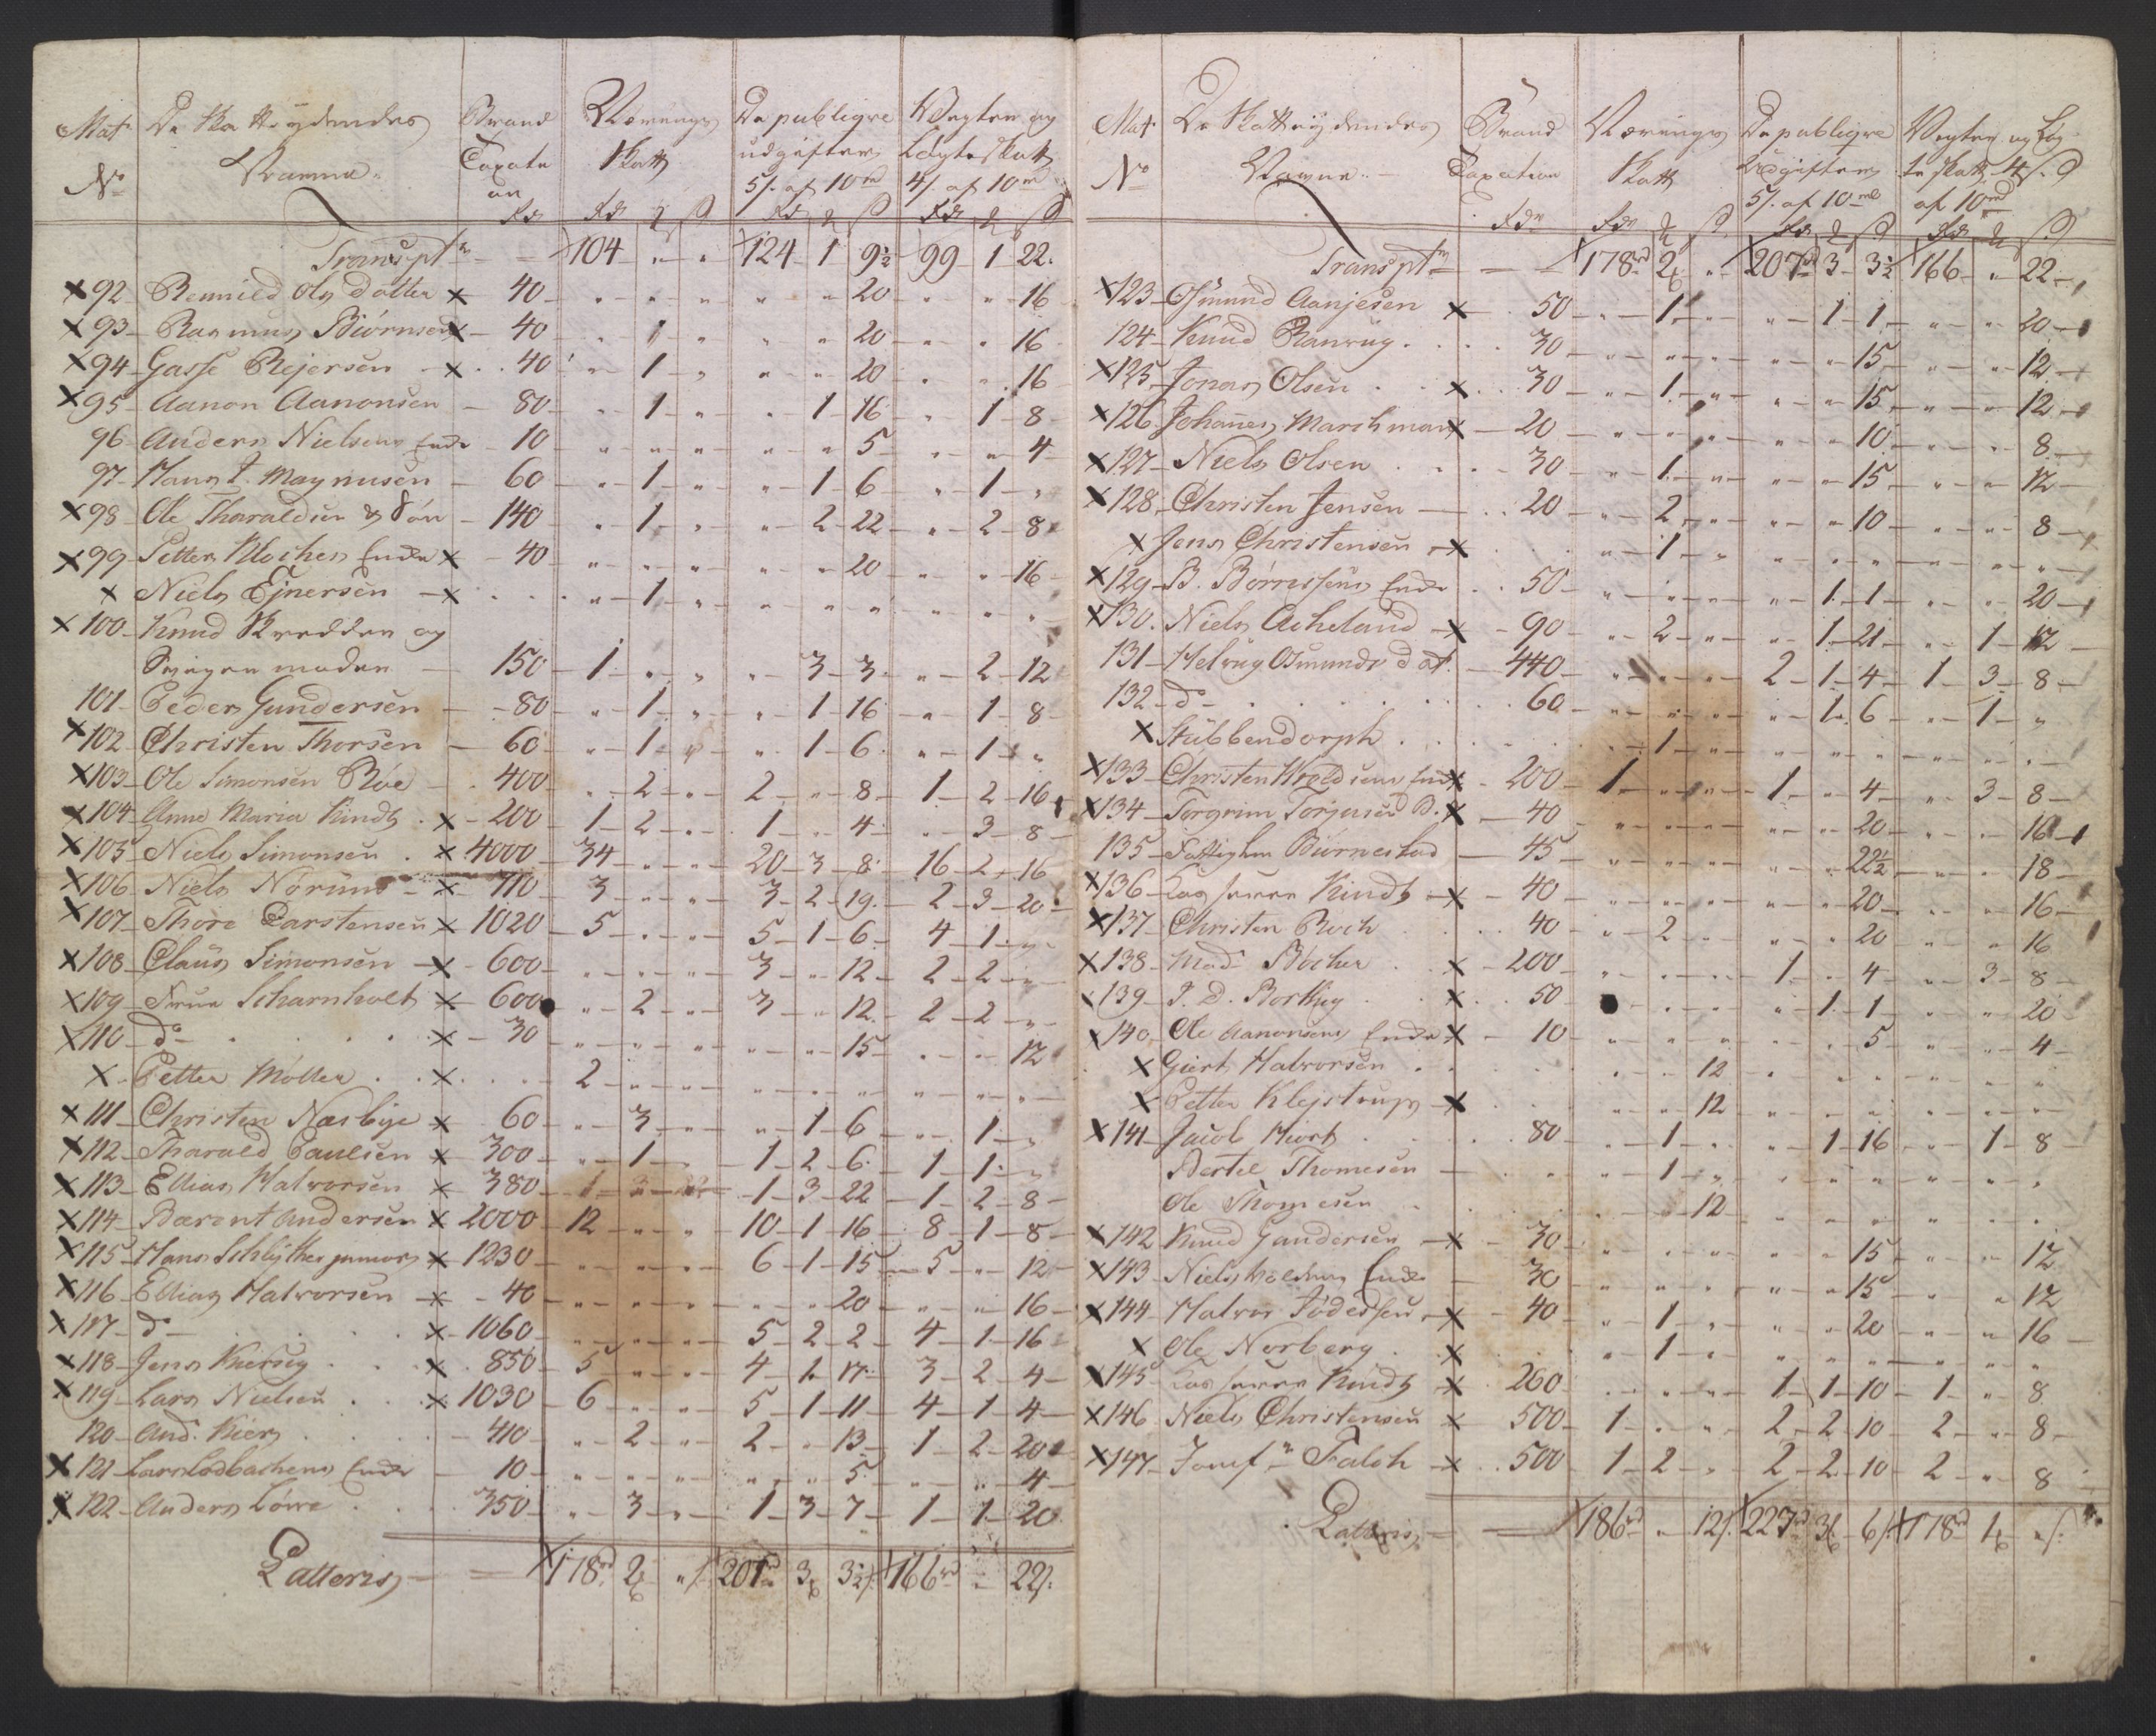 Mat. De Skattydendes Brand Nærings De publiqve Vægter og
No Navne Taxation Skatt udgifter Lægte skatt
5 s. af 10 rd 4 s. af 10 rd
Rd Rd s Rd s Rd s
Transpt 104 " " 124 1 9½ 99 1 22
x 92 Olsdatter x 40 " " " " " 20 " " 16
x 93 Rasmus Biørnsen x 40 " 1 " " " 20 " " 16
x 94 Gasse Rejersen x 40 " 1 " " " 20 " " 16
x 95 Aanon Aanonsen 80 " 1 " " 1 16 " 1 8
96 Anders Nielsens Enke 10 " " " " " 5 " " 4
97 Hans J. Magnusen 60 " 1 " " 1 6 " 1 "
x 98 Ole Tharaldsen & Søn 140 " 1 " " 2 22 " 2 8
x 99 Petter Klochers Enke x 40 " " " " " 20 " " 16
x Niels Ejnersen x " 1 " " " " " " "
x 100 Knud Skredder og
Svigermoder 150 1 " " " 3 3 " 2 12
101 Peder Gundersen 80 " 1 " " 1 16 " 1 8
x 102 Christen Thorsen 60 " 1 " " 1 6 " 1 "
x 103 Ole Simonsen Røe 400 " 2 " 2 " 8 1 2 16
x 104 Anne Maria Kindt x 200 1 2 " 1 " 4 " 3 8
x 105 Niels Simonsen x 4000 34 " " 20 3 8 16 2 16
x 106 Niels Nøruns x 710 3 " " 3 2 19 2 3 20
x 107 Thore Carstensen x 1020 5 " " 5 1 6 4 1 "
x 108 Claus Simonsen x 600 " " " 3 " 12 2 2 "
x 109 Frue Scharnholt x 600 " 2 " 3 " 12 2 2 "
x 110 do x 30 " " " " " 15 " " 12
x Petter Møller x 2 " " " " " " " "
x 111 Christen Næsbye x 60 " 3 " " 1 6 " 1 "
x 112 Tharald Paulsen x 300 " 1 " 1 2 6 1 1 "
x 113 Ellias Halvorsen x 380 1 3 22 1 2 8
x 114 Bærent Andersen x 2000 12 " " 10 1 16 8 1 8
x 115 Hans Schlÿther junior x 1230 " " " 6 1 15 5 " 12
x 116 Ellias Halvorsen x 40 " " " " " 20 " " 16
x 117 do x 1060 " " " 5 2 2 4 1 16
x 118 Jens Kiersig x 850 5 " " 4 1 17 3 2 4
x 119 Lars Nielsen x 1030 6 " " 5 1 11 4 1 4
120 And: Kiers 410 " 2 " 2 " 13 1 2 20
x 121 Lars Lodbachens Enke 10 " " " " " 5 " " 4
x 122 Anders Løvre 350 " 3 " 1 3 7 1 1 20
Latteris 178 rd 2 " s 207 rd 3 3½ s 166 rd " 22 s.
Mat. De Skattydendes Brand Nærings De publiqve Vægter og Læg-
No Navne Taxation Skatt Udgifter te skatt 4 s.
5 s. af 10 rd af 10 rd
Rd Rd s Rd s Rd s
Transpt 178 rd 2 " 207 rd 3 3½ 166 " 22
x 123 Osmund Aanjesen x 50 " 1 " " 1 1 " " 20
124 Knud Ranvig 30 " " " " " 15 " " 12
x 125 Jonas Olsen x 30 " 1 " " " 15 " " 12
x 126 Johanes Marchman x 20 " " " " " 10 " " 8
x 127 Niels Olsen 30 " 1 " " " 15 " " 12
x 128 Christen Jensen 20 " 2 " " " 10 " " 8
x Jens Christensen x " 1 " " " " " " "
x 129 B. Børresens Enke 50 " " " " 1 1 " " 20
x 130 Niels Acheland x 90 " 2 " " 1 21 " 1 12
131 Helvig Osmunds dat. 440 " " " 2 1 4 1 3 8
132 do 60 " " " " 1 6 " 1 "
x Stubbendorph " 1 " " " " " " "
x 133 Christen Woldsens Enke x 200 1 " " 1 " 4 " 3 8
x 134 Torgrim Torjusen B. x 40 " " " " " 20 " " 16
135 Fattighus Biørnestad 45 " " " " " 22½ " " 18
x 136 Kindt x 40 " " " " " 20 " " 16
x 137 Christen Roch 40 " 2 " " " 20 " " 16
x 138 Mad. Bøcher x 200 " " " 1 " 4 " 3 8
x 139 J. D. Borthig x 50 " " " 1 1 " " 20
x 140 Ole Aanonsens Enke x 10 " " " " " 5 " " 4
x Giert Halvorsen " " 12 " " " " " "
x Petter Klejstrup x " " 12 " " " " " "
x 141 Jacob Hiort 80 " 1 " " 1 16 " 1 8
Bertel Thomesen " 1 " " " " " " "
Ole Thomesen " " 12 " " " " " "
x 142 Knud Gundersen x 30 " " " " " 15 " " 12
x 143 Niels Enke 30 " " " " " 15 " " 12
x 144 Halvor x 40 " 1 " " " 20 " " 16
x Ole Norberg x " 1 " " " " " " "
x 145 Kindt x 260 " " " 1 1 10 1 " 8
x 146 Niels Christensen x 500 1 " " 2 2 10 2 " 8
x 147 Jomfr. Falch x 500 1 2 " 2 2 10 2 " 8
Latteris 186 rd " 12 s. 227 rd 3 6 s. 178 rd 1 " s.